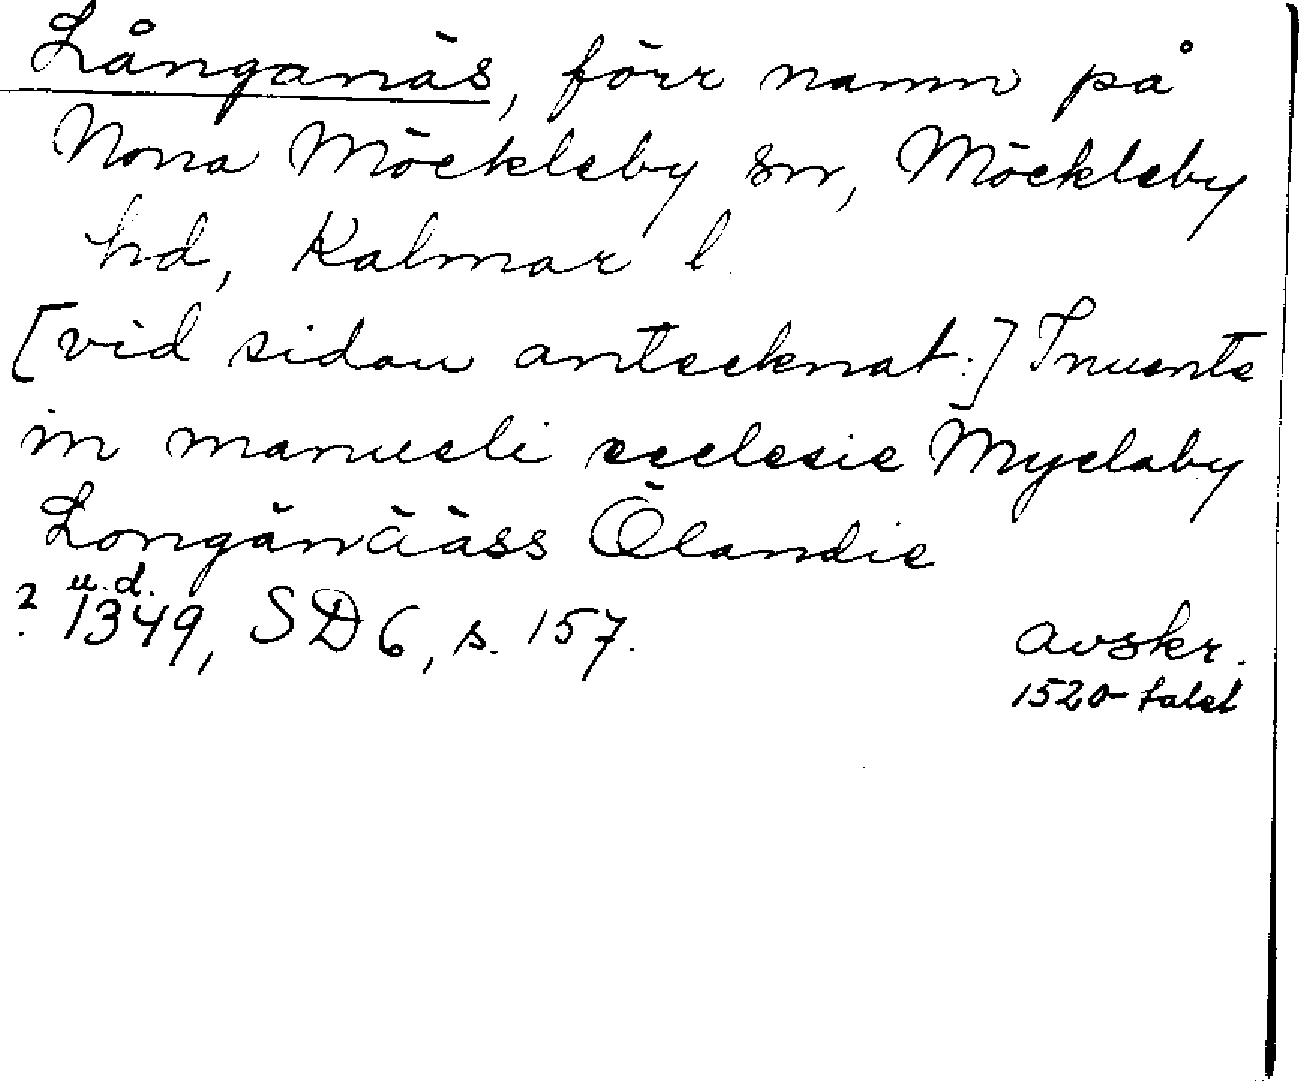 Långanäs, förr namn på
Norra Möckleby sn, Möckleby
hd, Kalmar l.
[vid sidan antecknat:] Inuente
in manueli ecclesie Myclaby
Longänääss Ölandie
? u.d. 1349, SD 6, s. 157.
avskr.
1520-talet